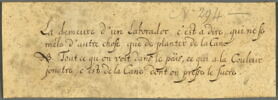 8-294
La demeure d'un Laborador, c'est a dire, qui ne se
mêle d'autre chose que de planter de la Cane
Tout ce qu'on voit dans le païs, ce qui a la Couleur
jonatre c'est de la Cane dont on presse le sucre